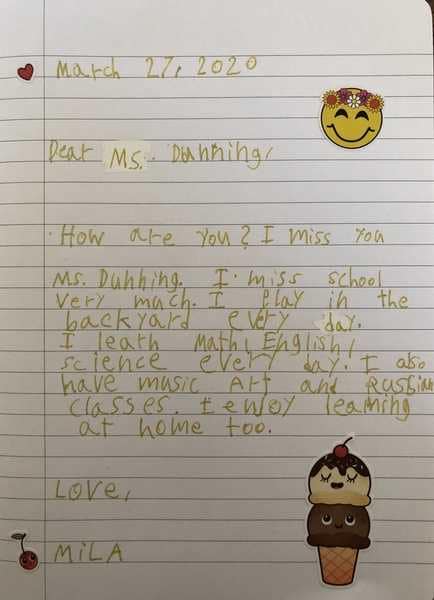 March 27, 2020
Dear Ms. Dunning,
How are you? I miss you
Ms. Dunning. I miss school
very much. I play in the
backyard every day.
I learn Math, English,
science every day. I also
have music Art and Russian
classes. I enjoy learning
at home too.
Love,
MiLA